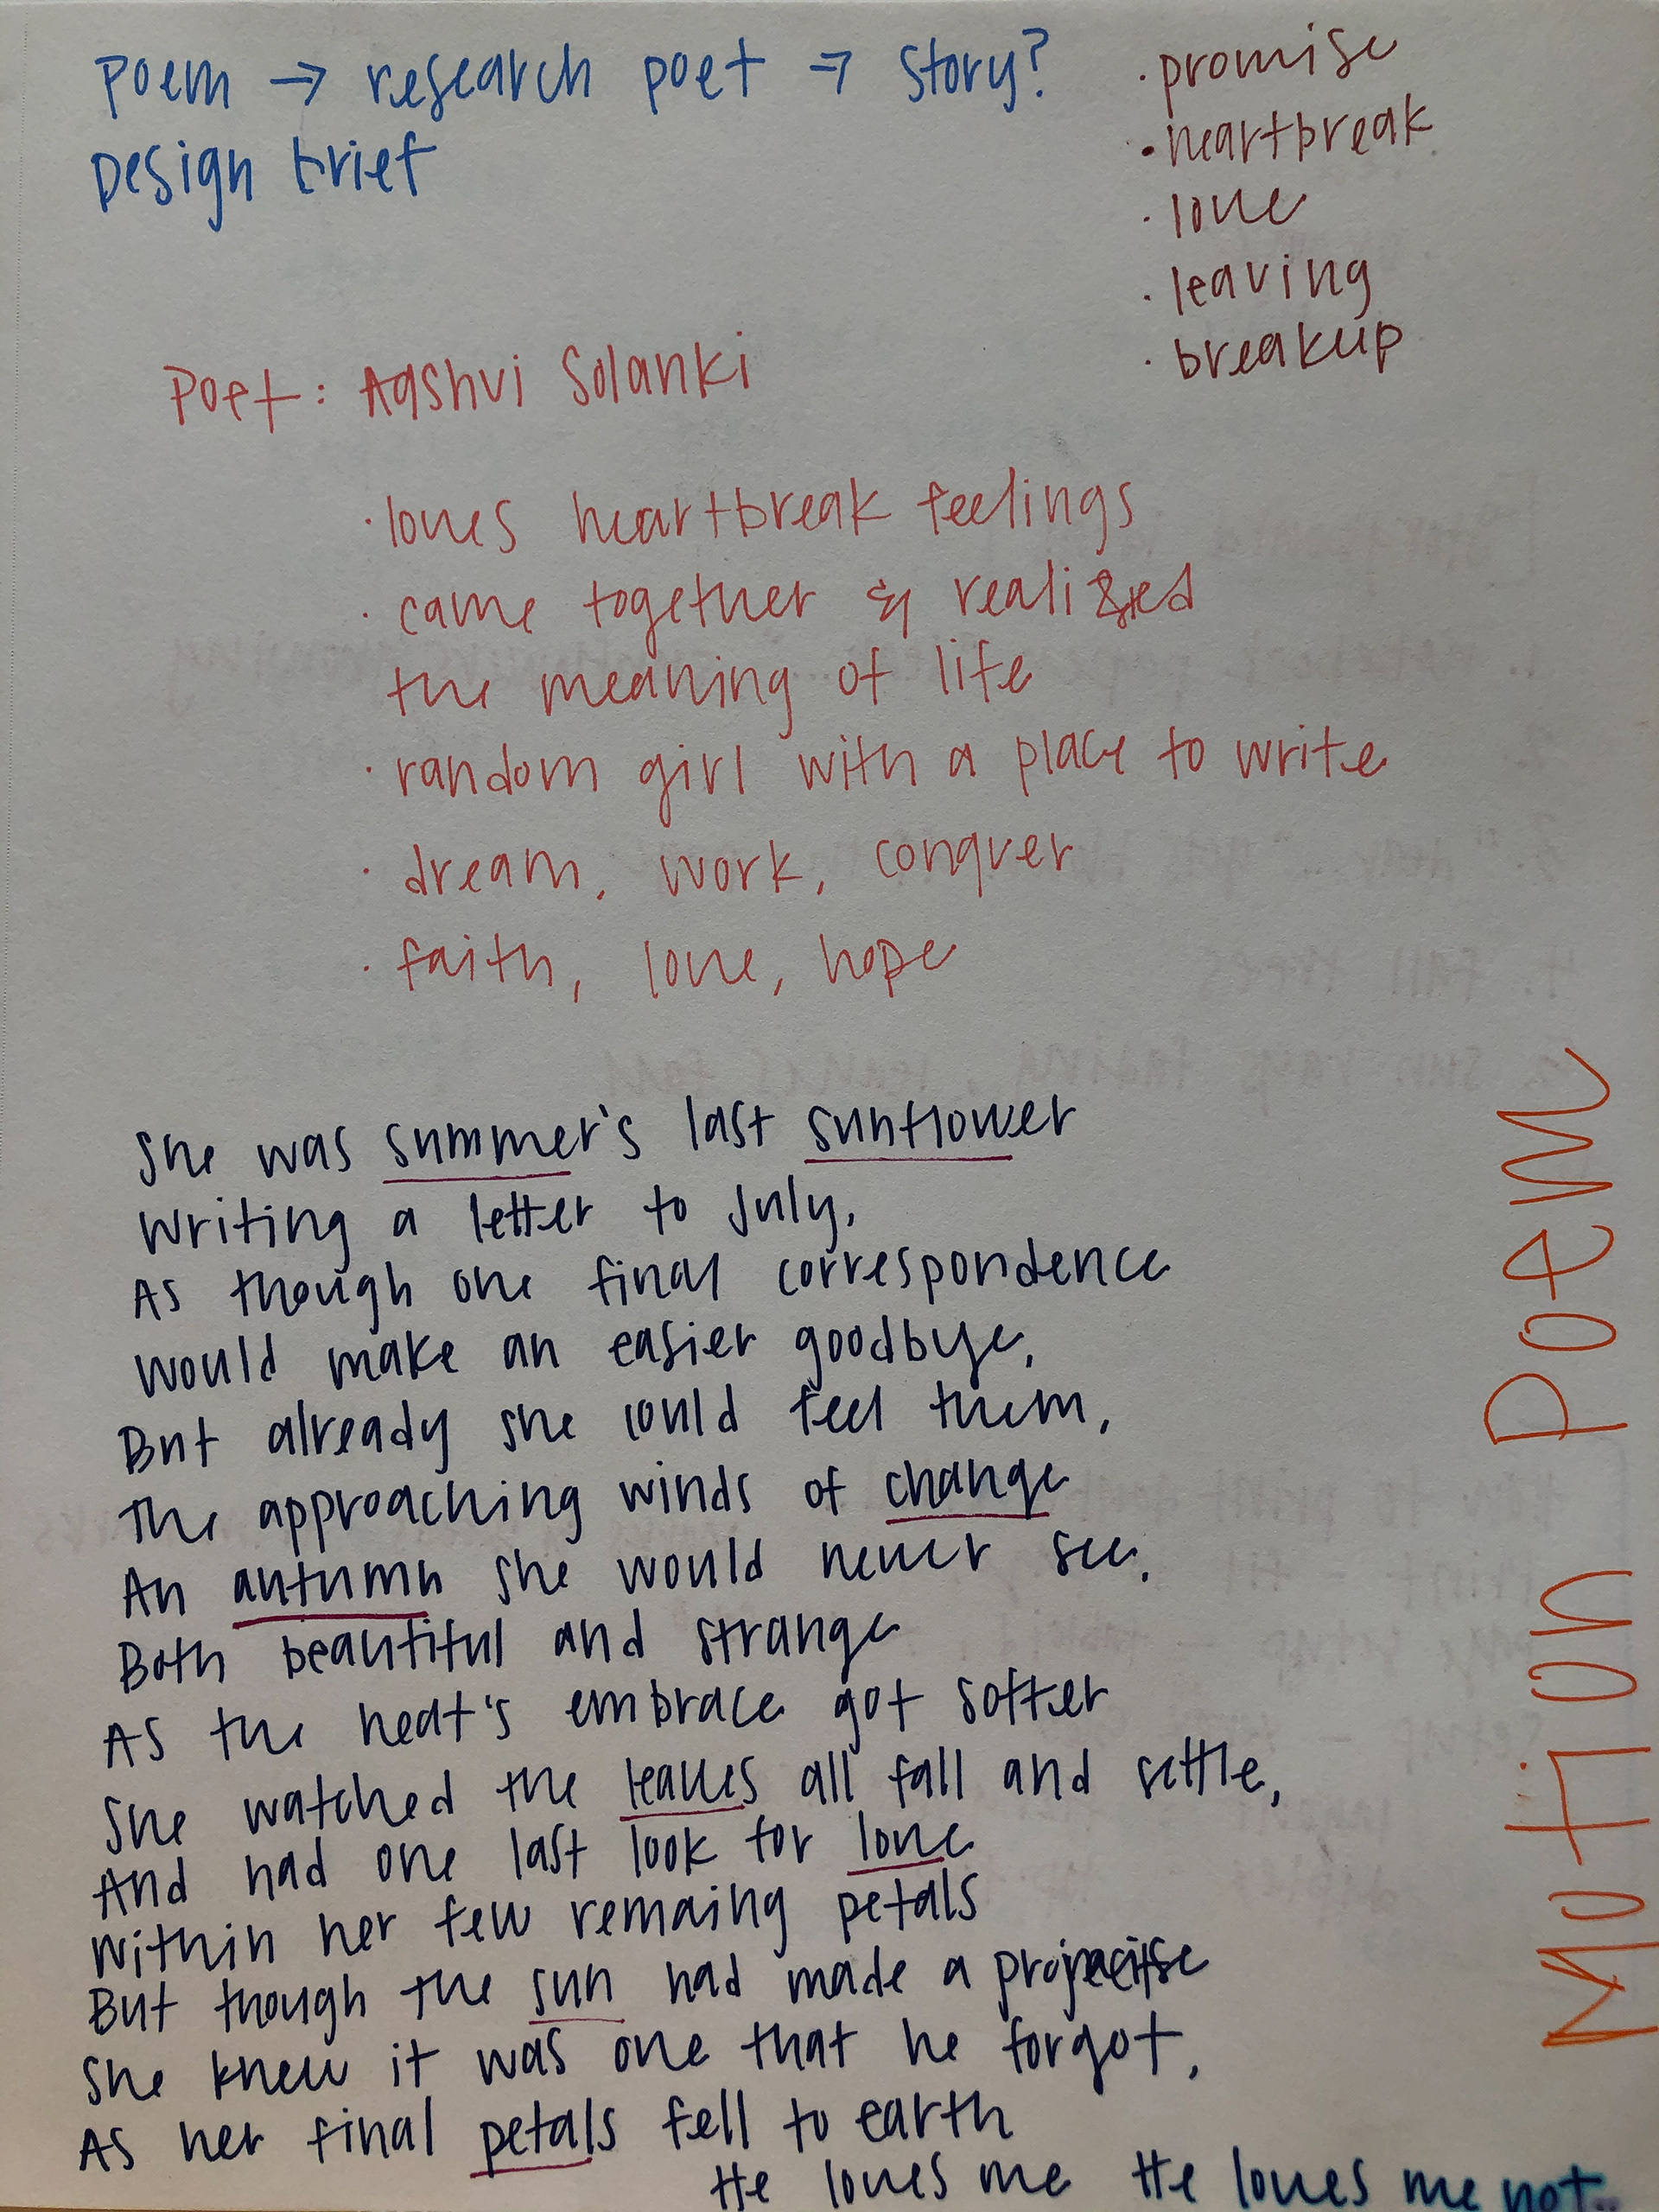 Poem → research poet → story?
Design brief
· promise
· heartbreak
· love
· leaving
· breakup
Poet: Aashvi Solanki
· loves heartbreak feelings
· came together & realized
the meaning of life
· random girl with a place to write
· dream, work, conquer
· faith, love, hope
She was summer's last sunflower
Writing a letter to July,
As though one final correspondence
Would make an easier goodbye,
But already she could feel them,
The approaching winds of change
An autumn she would never see,
Both beautiful and strange
As the heat's embrace got softer
She watched the leaves all fall and settle,
And had one last look for love
Within her few remaing petals
But though the sun had made a promise
She knew it was one that he forgot,
As her final petals fell to earth
He loves me He loves me not..
Motion Poem